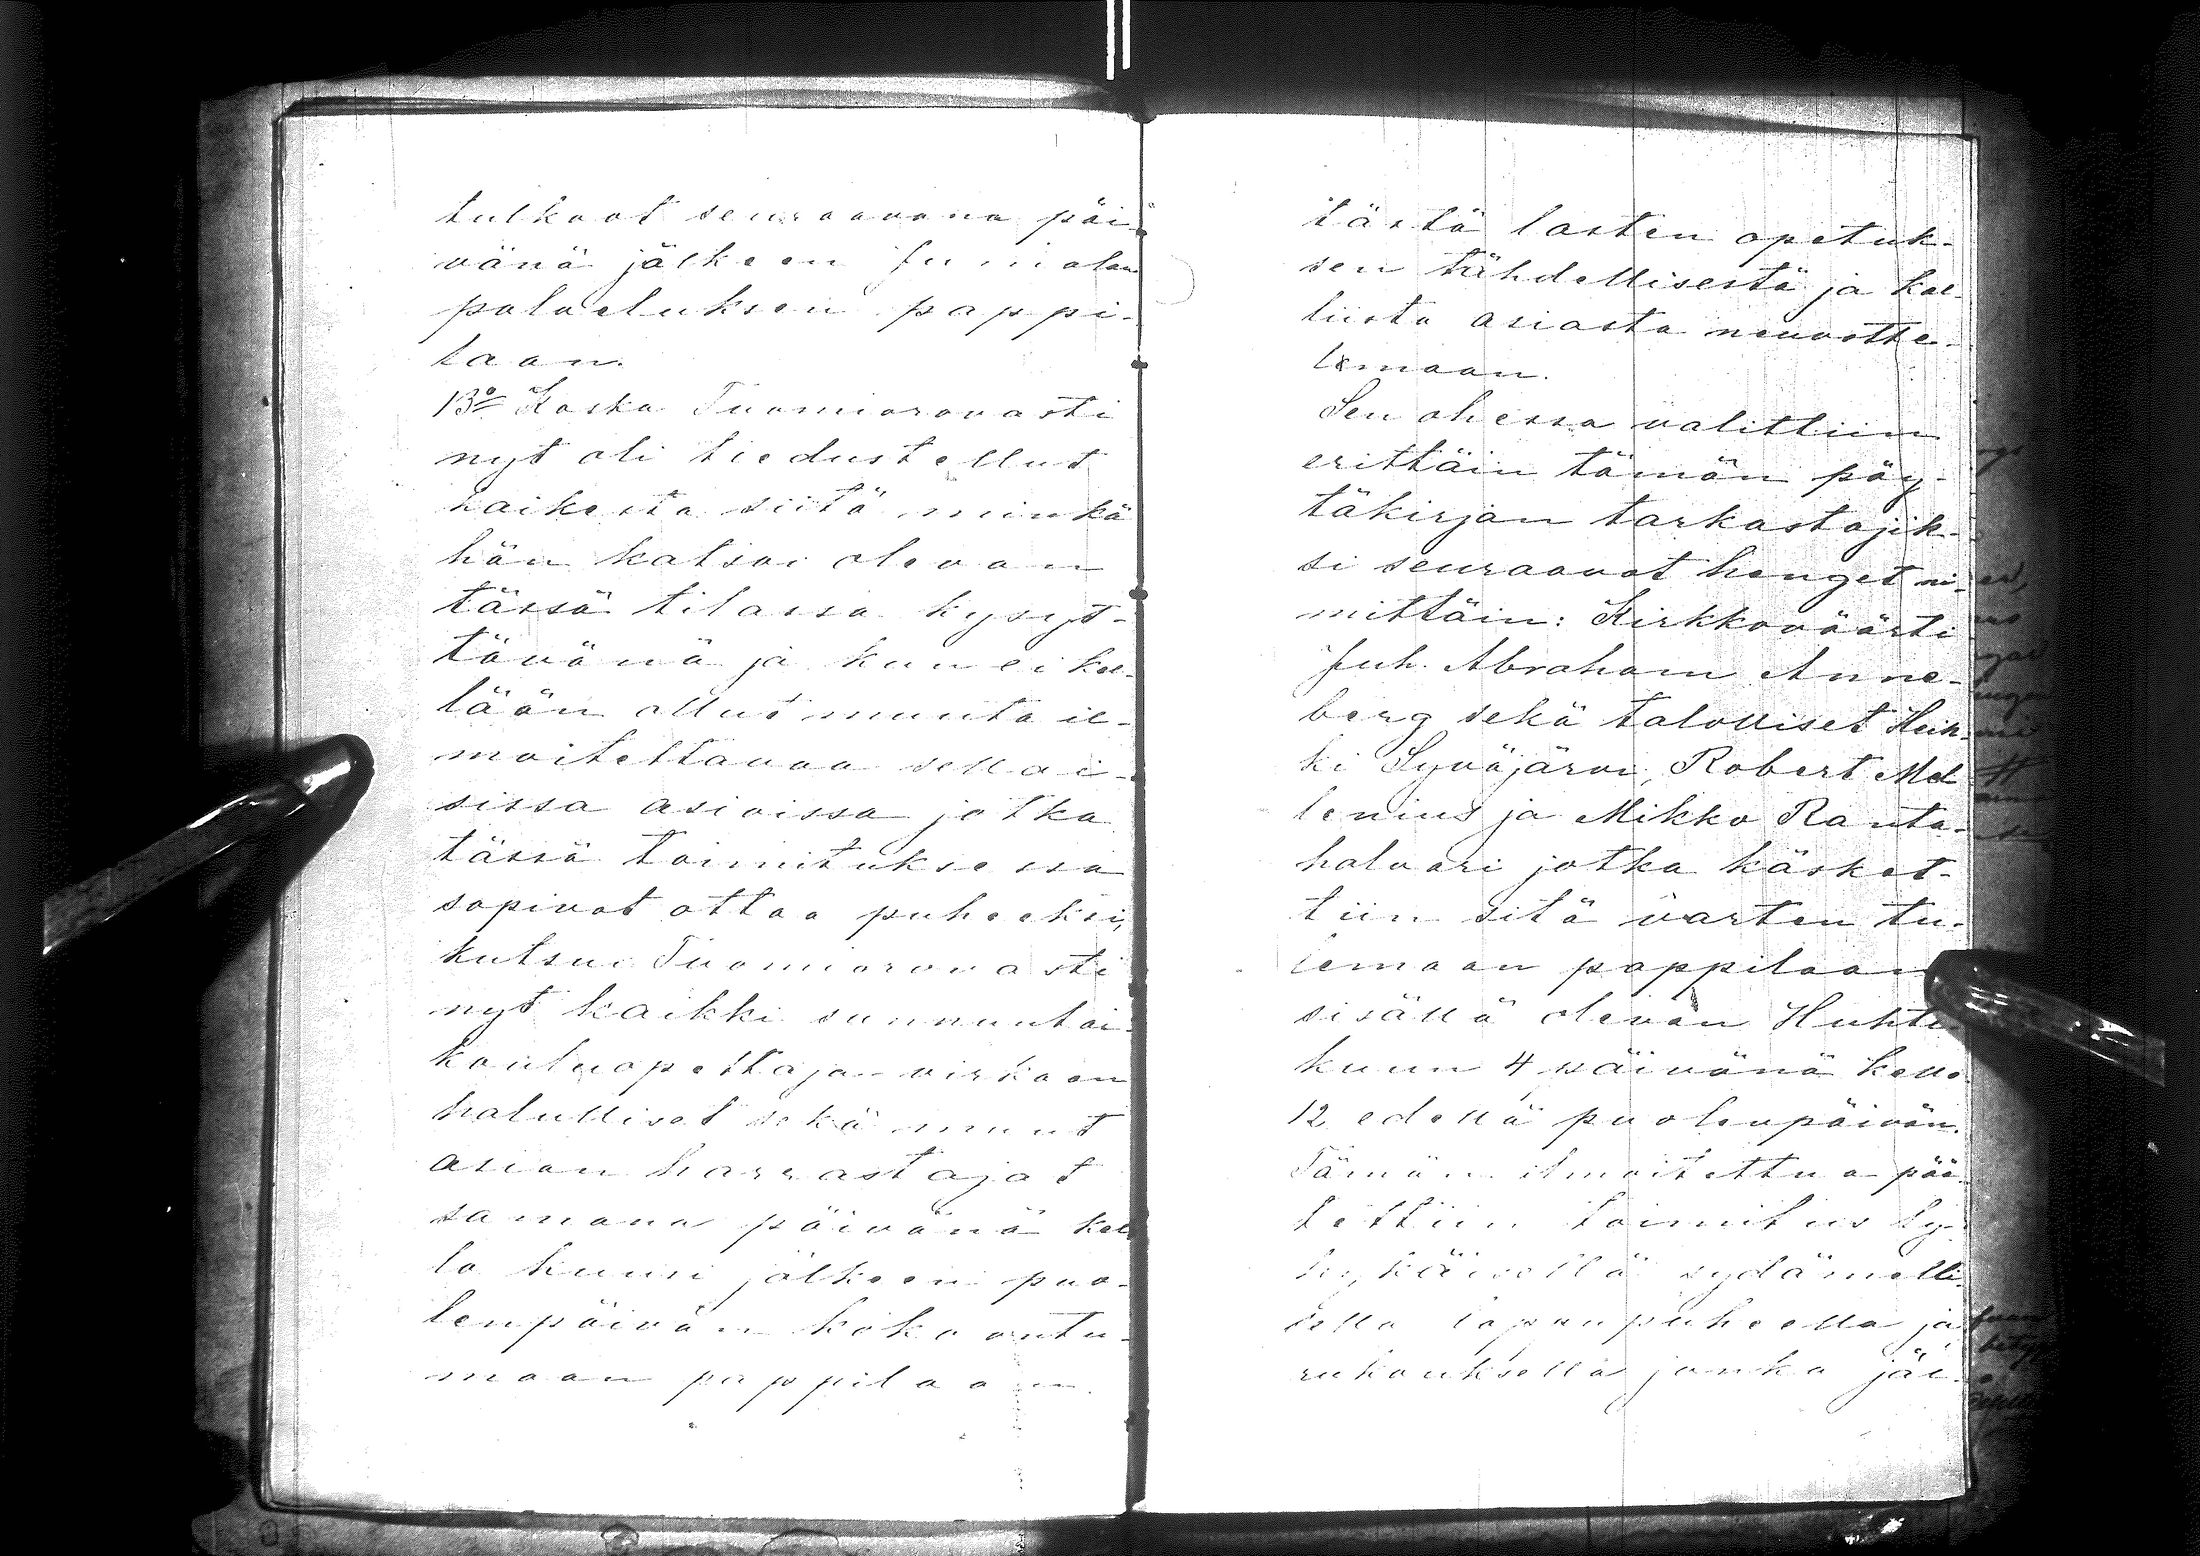 tulkoot seuraavana päi-
vänä jälkeen Jumalan
palveluksen pappi-
laan.
13o Koska Tuomiorovasti
nyt oli tiedustellut
kaikesta siitä minkä
hän katsoi olevan
tässä tilassa kysyt-
tävänä ja kun ei kel-
lään ollut muuta il-
moitettavaa sellai-
sissa asioissa jotka
tässä toimituksessa
sopivat ottaa puheeksi,
kutsui Tuomiorovasti
nyt kaikki sunnuntai-
kouluopettajan virkaan
halulliset sekä muut
asian harrastajat
samana päivänä kel-
lo kuusi jälkeen puo-
lenpäivän kokoontu-
maan pappilaan.
tästä lasten opetuk-
sen tähdellisestä ja kal-
liista asiasta neuvotte-
lemaan.
Sen ohessa valittiin
erittäin tämän pöy-
täkirjan tarkastajik-
si seuraavat henget ni-
mittäin: Kirkkoväärti
Juh. Abraham Anne-
berg sekä talolliset Heik-
ki Syväjärvi, Robert Mel
lenius ja Mikko Ranta-
halvari jotka käsket-
tiin sitä varten tu-
lemaan pappilaan
sisällä olevan Huhti
kuun 4 päivänä kello
12 edellä puolenpäivän.
Tämän ilmoitettua pää
tettiin toimitus ly-
hykäisellä sydämelli-
sellä lopunpuheella ja
rukouksella jonka jäl-